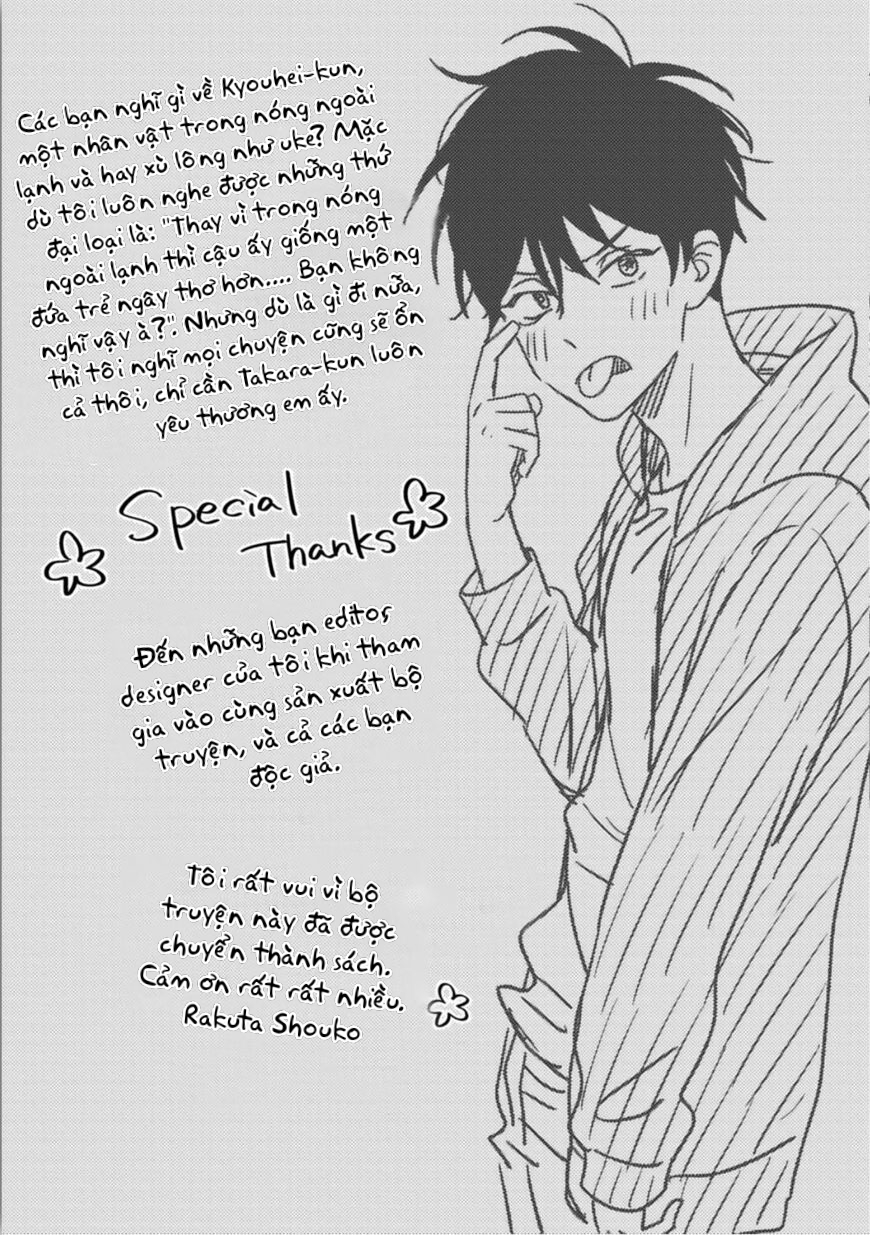 Các bạn nghĩ gì về Kyouhei-kun,
một nhân vật trong nóng ngoài
lạnh và hay xù lông như uke? Mặc
dù tôi luôn nghe được những thứ
đại loại là: "Thay vì trong nóng
ngoài lạnh thì cậu ấy giống một
đứa trẻ ngây thơ hơn.... Bạn không
nghĩ vậy à?". Nhưng dù là gì đi nữa,
thì tôi nghĩ mọi chuyện cũng sẽ ổn
cả thôi, chỉ cần Takara-kun luôn
yêu thương em ấy.
Special
Thanks
Đến những bạn editor,
designer của tôi khi tham
gia vào cùng sản xuất bộ
truyện, và cả các bạn
độc giả.
Tôi rất vui vì bộ
truyện này đã được
chuyển thành sách.
Cảm ơn rất rất nhiều.
Rakuta Shouko